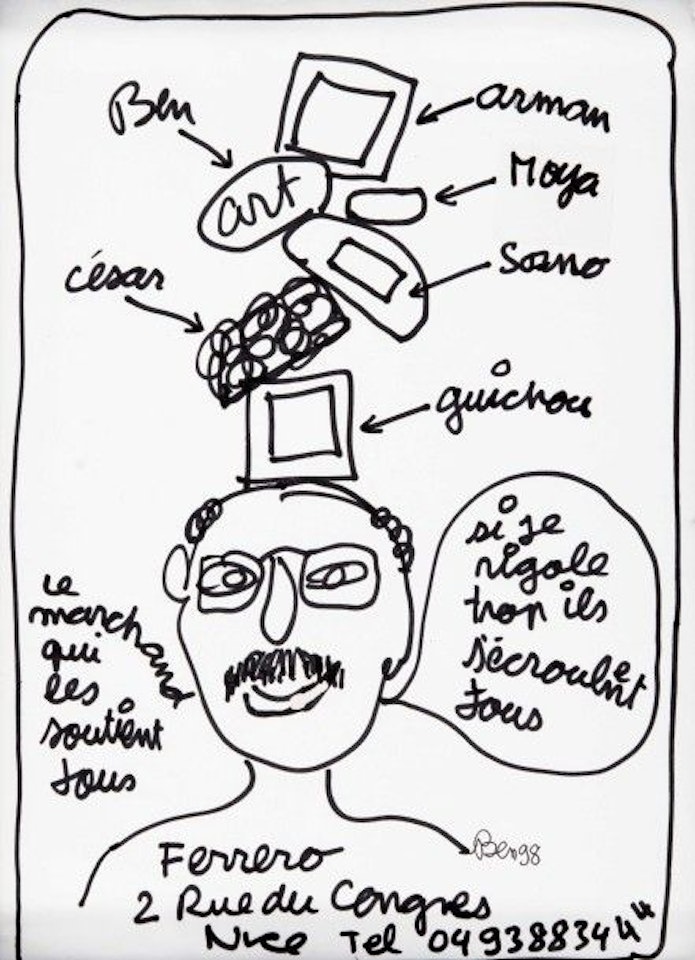 Ben
arman
art
Moya
Sosno
césar
guichou
si je
rigole
trop ils
s'écroulent
tous
le
marchand
qui
les
soutient
tous
Ben 98
Ferrero
2 Rue du Congres
Nice Tel 0493883444